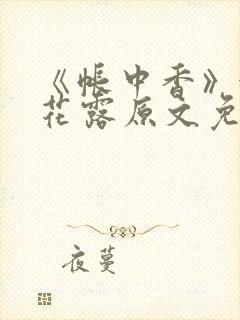 《帐中香》
花露原文免
夜蔓